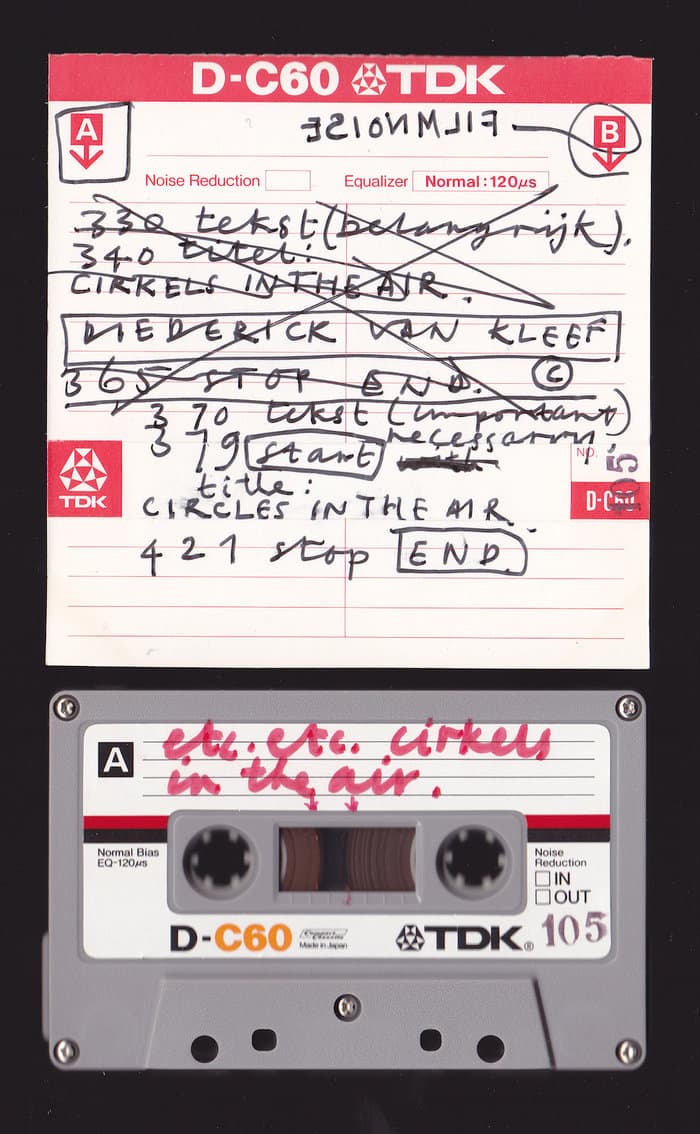 D-C60 TDK
A FILMNOISE B
Noise Reduction Equalizer Normal:120µs
330 tekst (belangrijk).
340 titel:
CIRKELS IN THE AIR.
DIEDERICK VAN KLEEF
365 STOP END. ©
370 tekst (important)
379 start necessary.
title:
CIRCLES IN THE AIR.
421 stop END.
TDK
NO. 105
D-C60
A
etc. etc. cirkels
in the air.
Normal Bias
EQ-120µs
Noise
Reduction
IN
OUT
D-C60 Compact Cassette Made in Japan TDK® 105